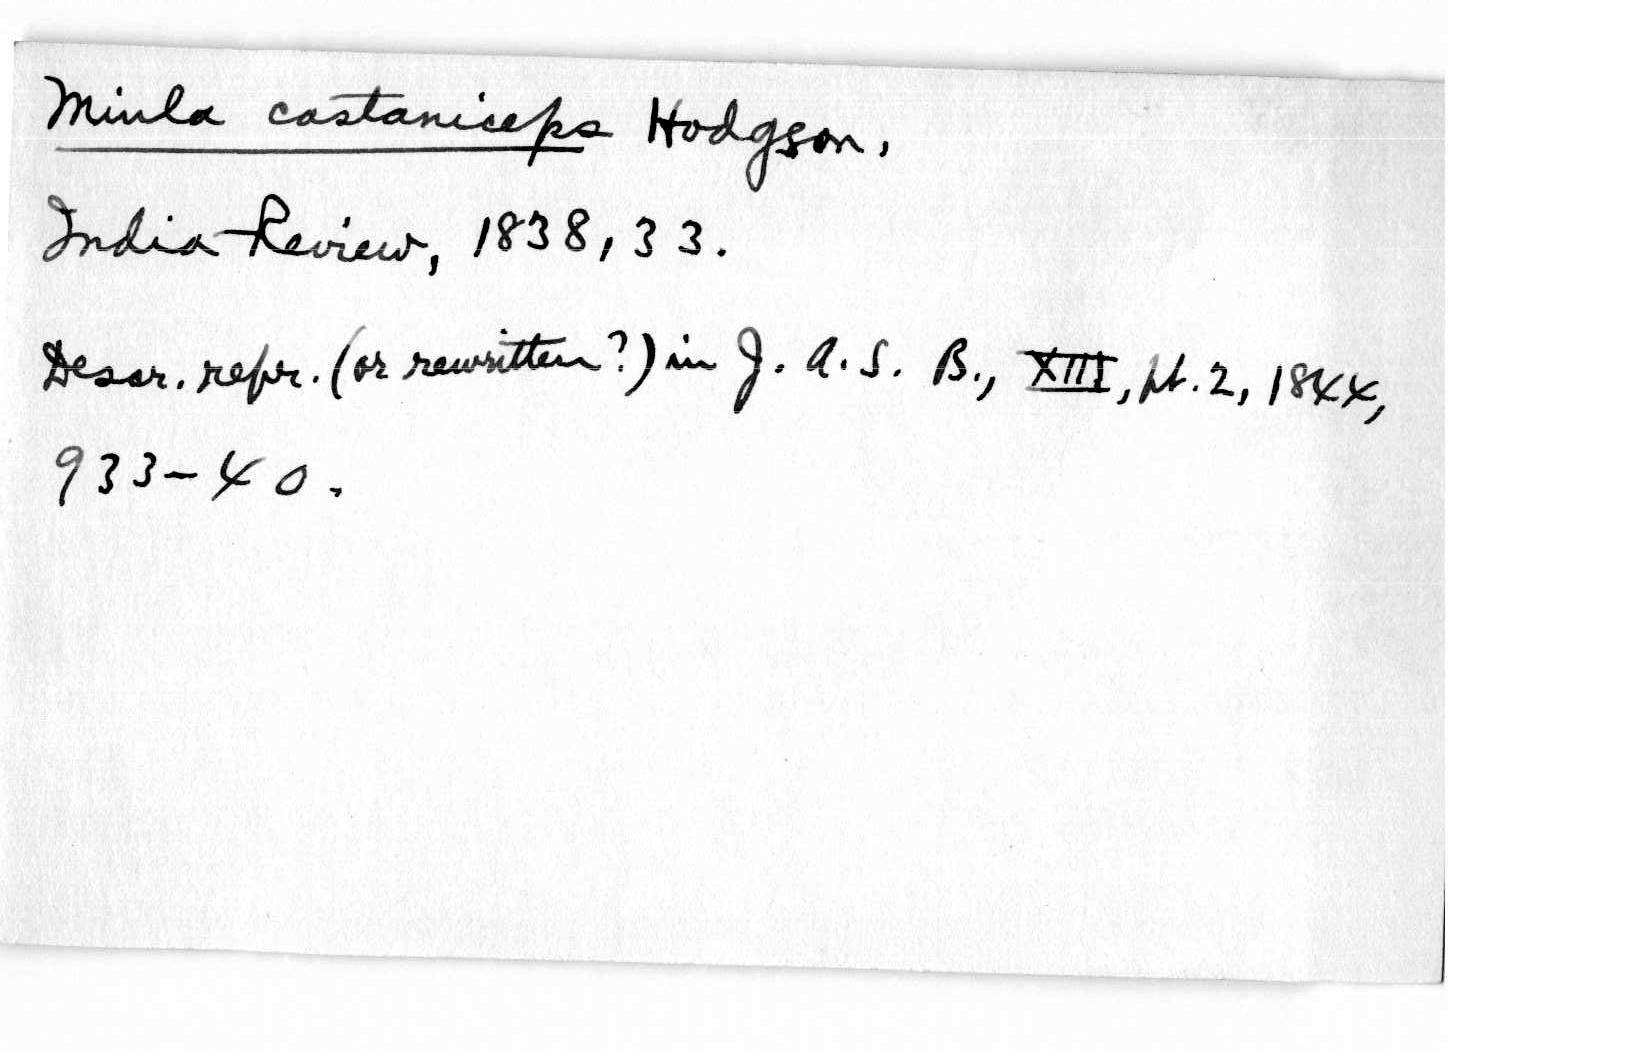 Minla castaniceps Hodgson,
India Review, 1838, 33.
Descr. repr. (or rewritten?) in J. A. S. B., XIII, pt. 2, 1844,
933-40.